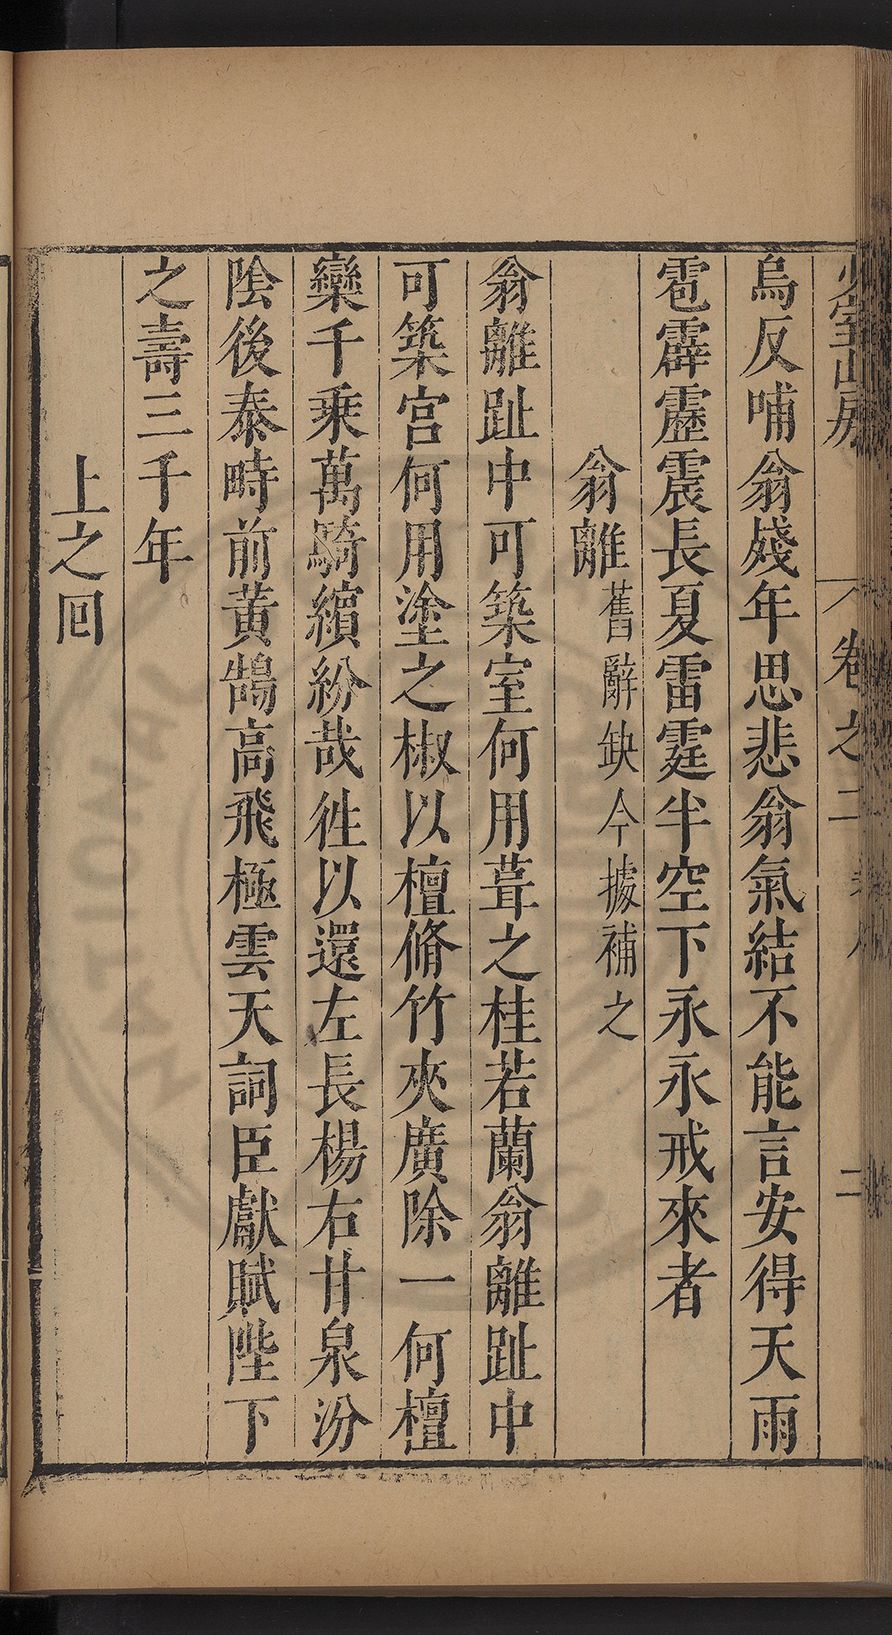 少室山房 卷之二 二
烏反哺翁殘年思悲翁氣結不能言安得天雨
雹霹靂震長夏雷霆半空下永永戒來者
翁離舊辭缺今據補之
翁離趾中可築室何用葺之桂若蘭翁離趾中
可築宮何用塗之椒以檀脩竹夾廣除一何檀
欒千乘萬騎繽紛哉徃以還左長楊右甘泉汾
陰後泰畤前黃鵠高飛極雲天詞臣獻賦陛下
之壽三千年
上之囘